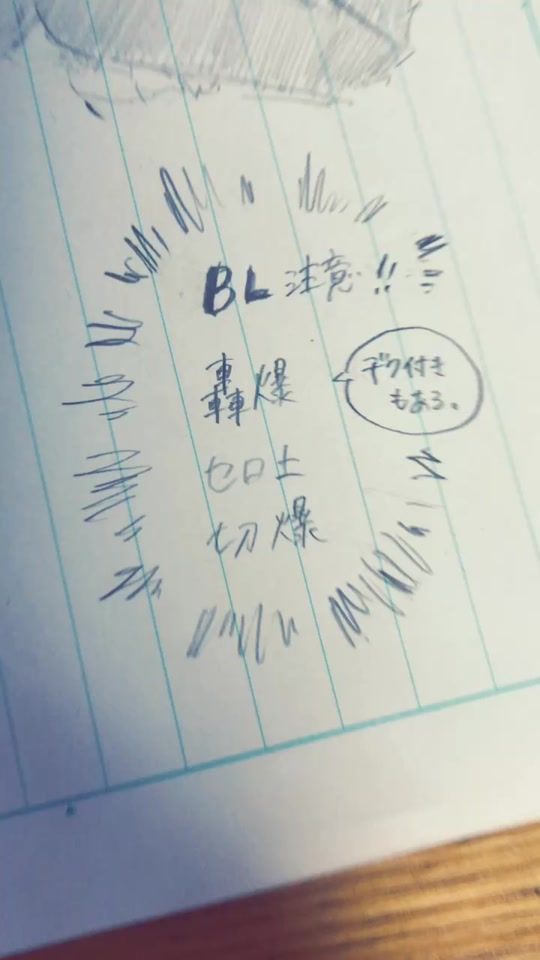 BL注意!!
轟爆
デク付き
もある。
セロ土
切爆